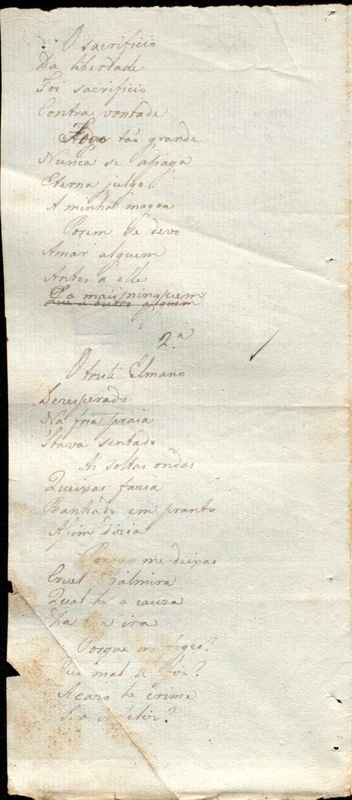 O sacrificio
Da libertade
Foi sacrificio
Contra vontade
Fogo taõ grande
Nunca se apaga
Eterna julgo
A minha magoa
Porem se devo
Amar alguem
Antes a elle
Do mais ninguem
2.ª
O triste Elmano
Desesperado
Na fria praia
Stava sentado
As soltas ondas
Queixas fazia
Banhado em pranto
Assim dizia
Porque me deixas
Cruel Palmira
Qual he a causa
Porque
Que mal te fiz?
Acaso he crime